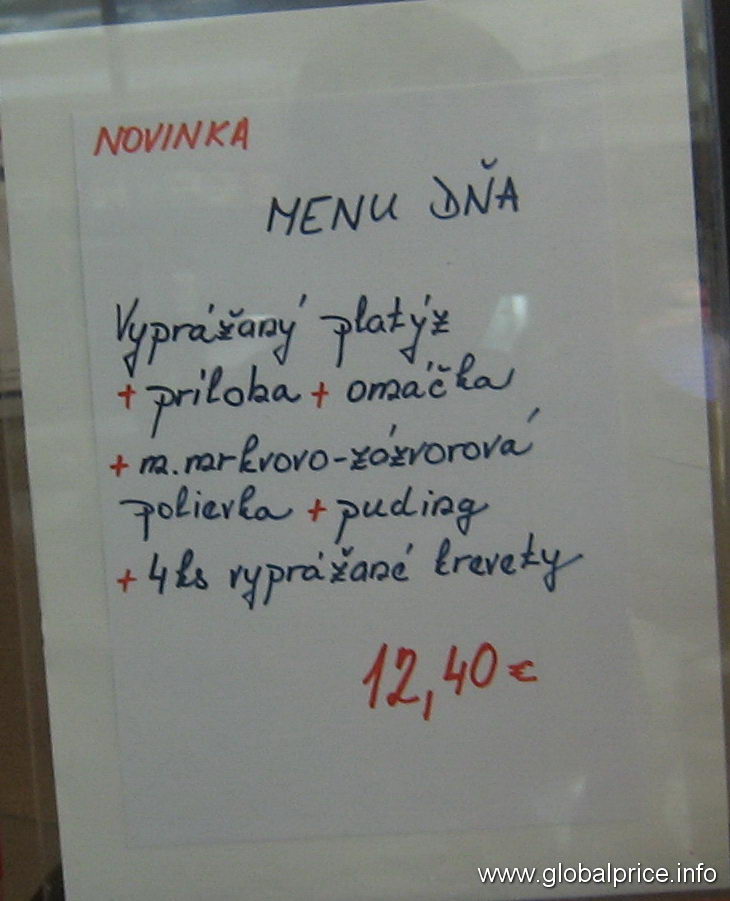 NOVINKA
MENU DŇA
Vyprážaný platýz
+ príloha + omáčka
+ m. mrkvovo-zázvorová
polievka + puding
+ 4 ks vyprážané krevety
12,40 €
www.globalprice.info